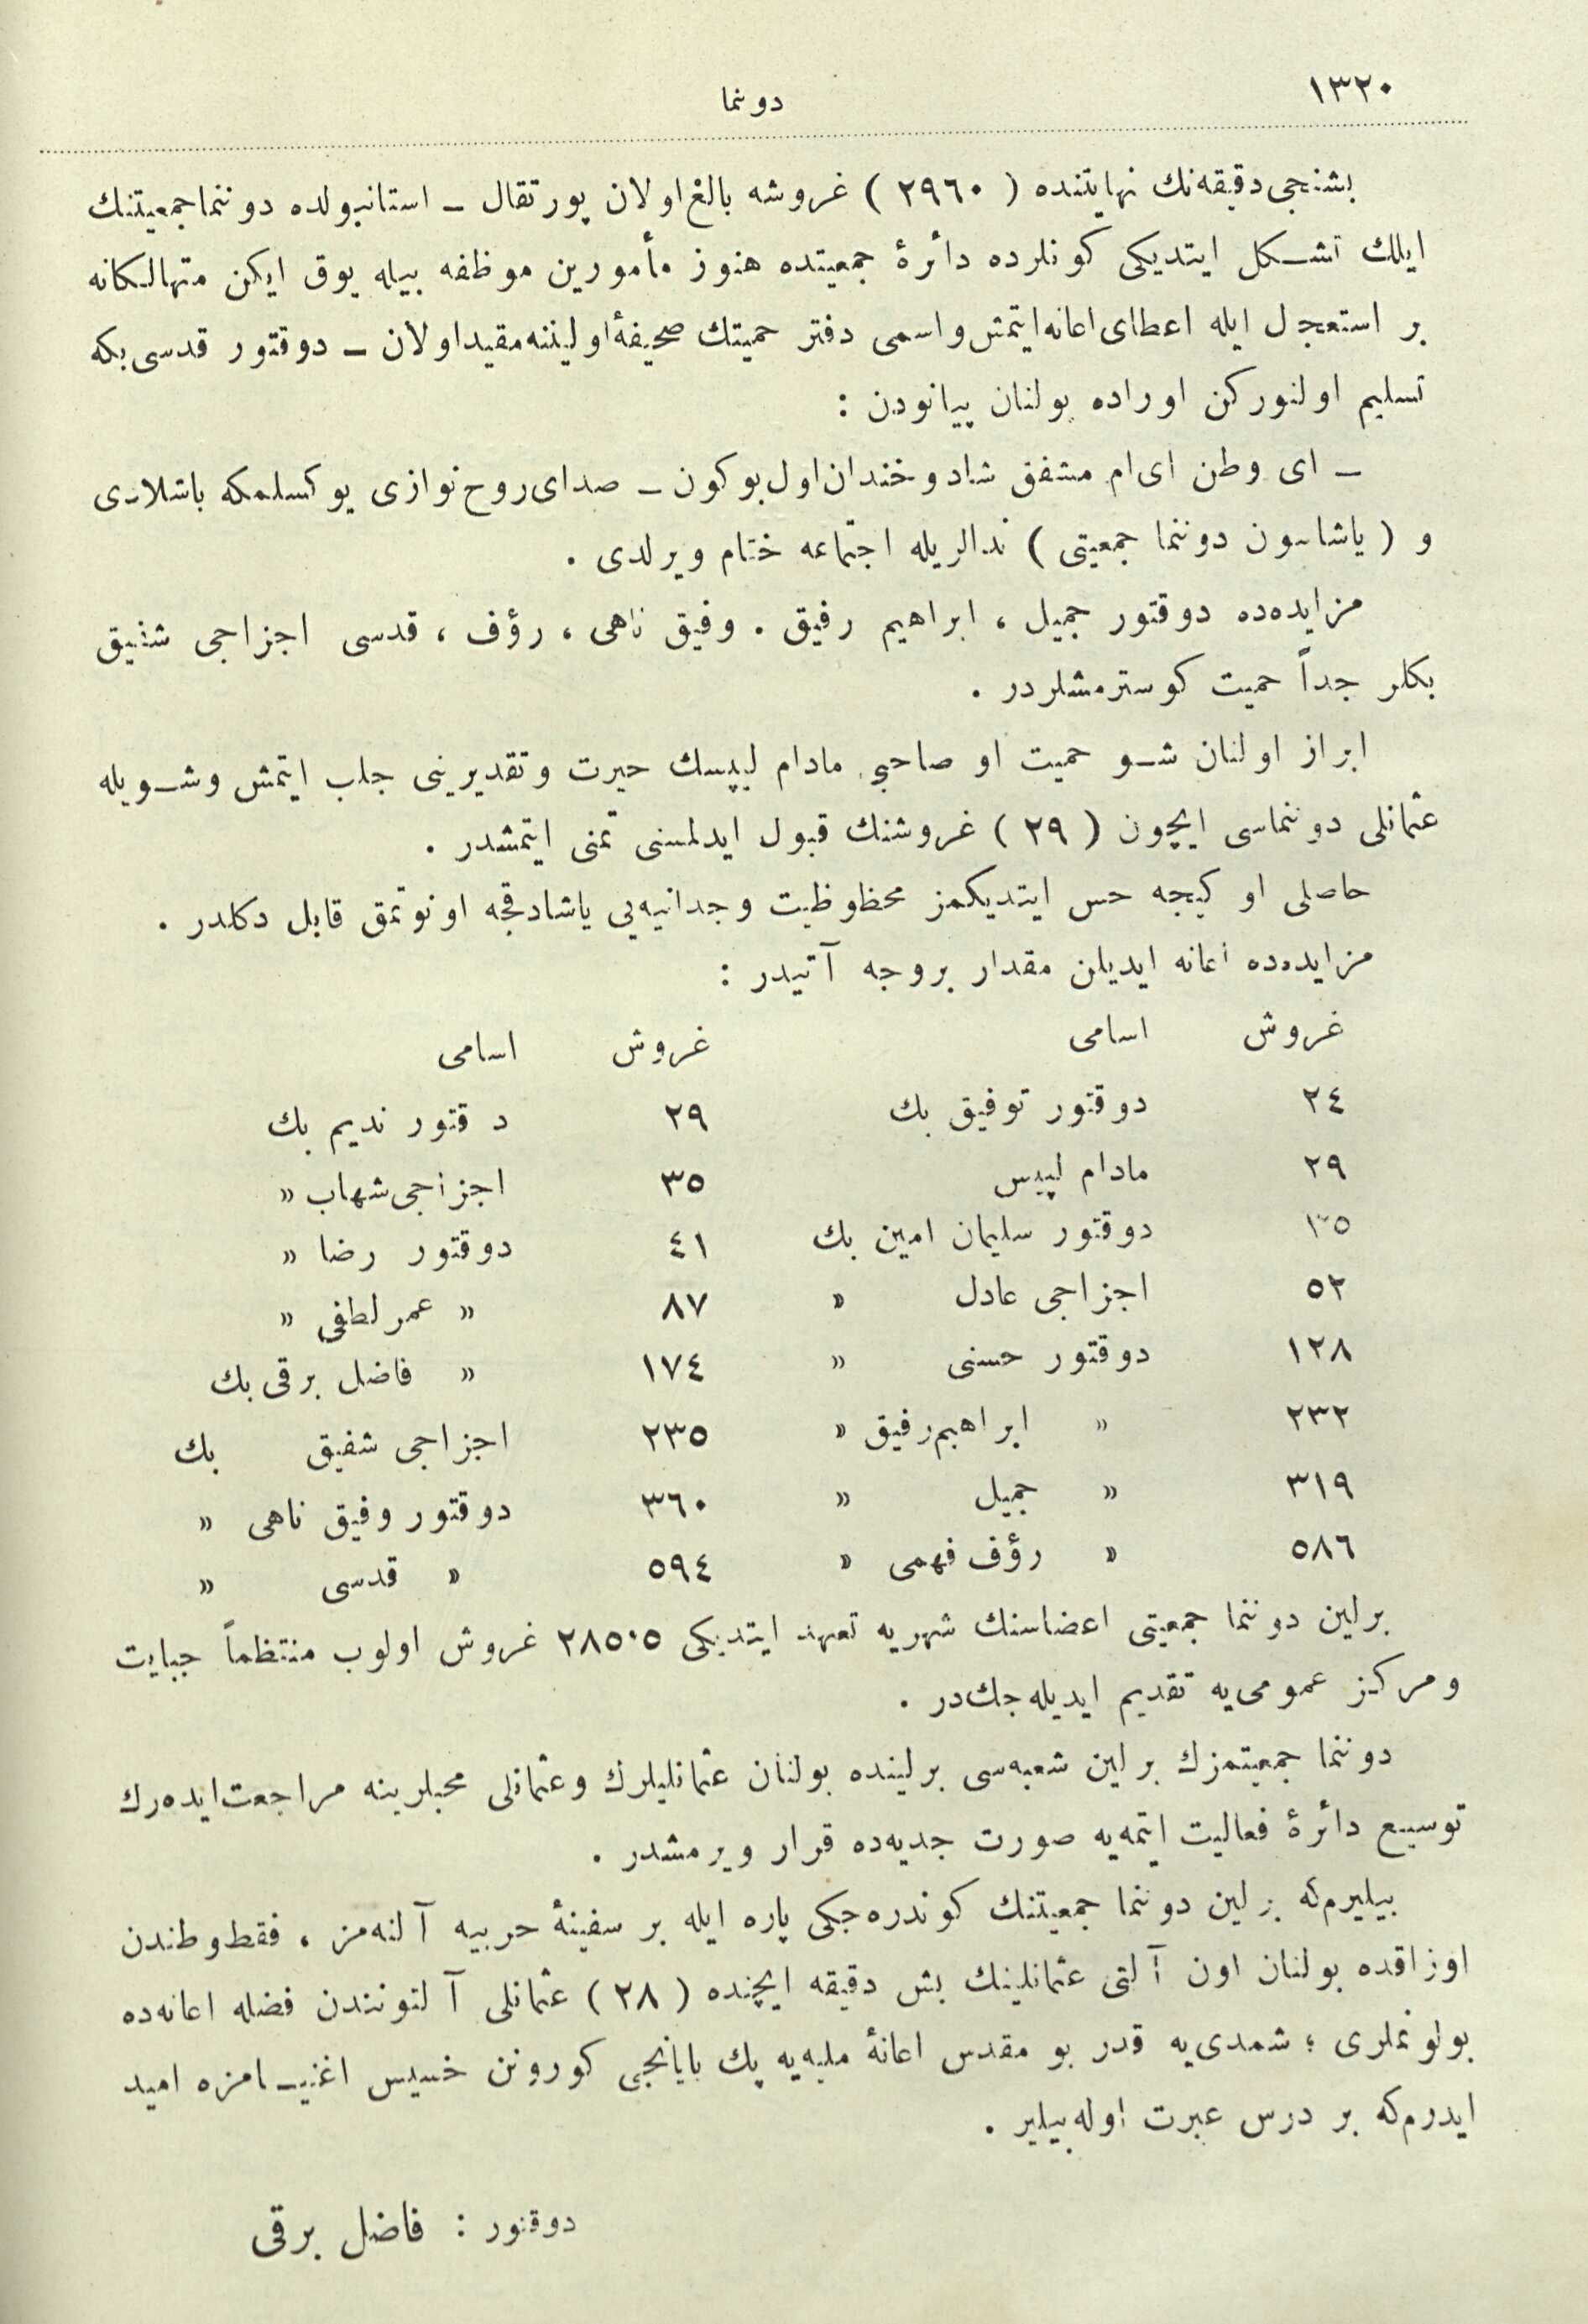 ١٣٢٠
دوننما
بشنجی دقیقه‌نك نهایتنده ( ٢٩٦٠ ) غروشه بالغ اولان پورتقال ــ استانبولده دوننما جمعیتنك
ایلك تشكل ایتدیكی كونلرده دائرهٔ جمعیتده هنوز مأمورین موظفه بیله یوق ایكن متهالكانه
بر استعجال ایله اعطای اعانه ایتمش و اسمی دفتر حمیتك صحیفهٔ اولیننه مقید اولان ــ دوقتور قدسی بكه
تسلیم اولنوركن اوراده بولنان پیانودن :
ــ ای وطن ای ام مشفق شاد و خندان اول بوكون ــ صدای روح نوازی یوكسلمكه باشلادی
و ( یاشاسون دوننما جمعیتی ) ندالریله اجتماعه ختام ویرلدی .
مزایده‌ده دوقتور جمیل ، ابراهیم رفیق . وفیق ناهی ، رؤف ، قدسی اجزاجی شفیق
بكلر جداً حمیت كوسترمشلردر .
ابراز اولنان شو حمیت او صاحبی مادام لیپسك حیرت و تقدیرینی جلب ایتمش و شویله
عثمانلی دوننماسی ایچون ( ٢٩ ) غروشنك قبول ایدلمسنی تمنی ایتمشدر .
حاصلی او كیجه حس ایتدیكمز محظوظیت وجدانیه‌یی یاشادقجه اونوتمق قابل دكلدر .
مزایده‌ده اعانه ایدیلن مقدار بروجه آتیدر :
غروش اسامی غروش اسامی
٢٤ دوقتور توفیق بك ٢٩ دقتور ندیم بك
٢٩ مادام لیپس ٣٥ اجزاجی شهاب »
٣٥ دوقتور سلیمان امین بك ٤١ دوقتور رضا »
٥٢ اجزاجی عادل » ٨٧ » عمر لطفی »
١٢٨ دوقتور حسنی » ١٧٤ » فاضل برقی بك
٢٣٢ » ابراهیم رفیق » ٢٣٥ اجزاجی شفیق بك
٣١٩ » جمیل » ٣٦٠ دوقتور وفیق ناهی »
٥٨٦ » رؤف فهمی » ٥٩٤ » قدسی »
برلین دوننما جمعیتی اعضاسنك شهریه تعهد ایتدیكی ٢٨٥٠٥ غروش اولوب منتظماً جبایت
و مركز عمومی‌یه تقدیم ایدیله‌جك‌در .
دوننما جمعیتمزك برلین شعبه‌سی برلینده بولنان عثمانلیلرك و عثمانلی محبلرینه مراجعت ایده‌رك
توسیع دائرهٔ فعالیت ایتمه‌یه صورت جدیه‌ده قرار ویرمشدر .
بیلیرم‌كه برلین دوننما جمعیتنك كوندره‌جكی پاره ایله بر سفینهٔ حربیه آلنه‌مز ، فقط وطندن
اوزاقده بولنان اون آلتی عثمانلینك بش دقیقه ایچنده ( ٢٨ ) عثمانلی آلتونندن فضله اعانه‌ده
بولونملری ؛ شمدی‌یه قدر بو مقدس اعانهٔ ملیه‌یه پك یابانجی كورونن خسیس اغنیامزه امید
ایدرم‌كه بر درس عبرت اوله‌بیلیر .
دوقتور : فاضل برقی